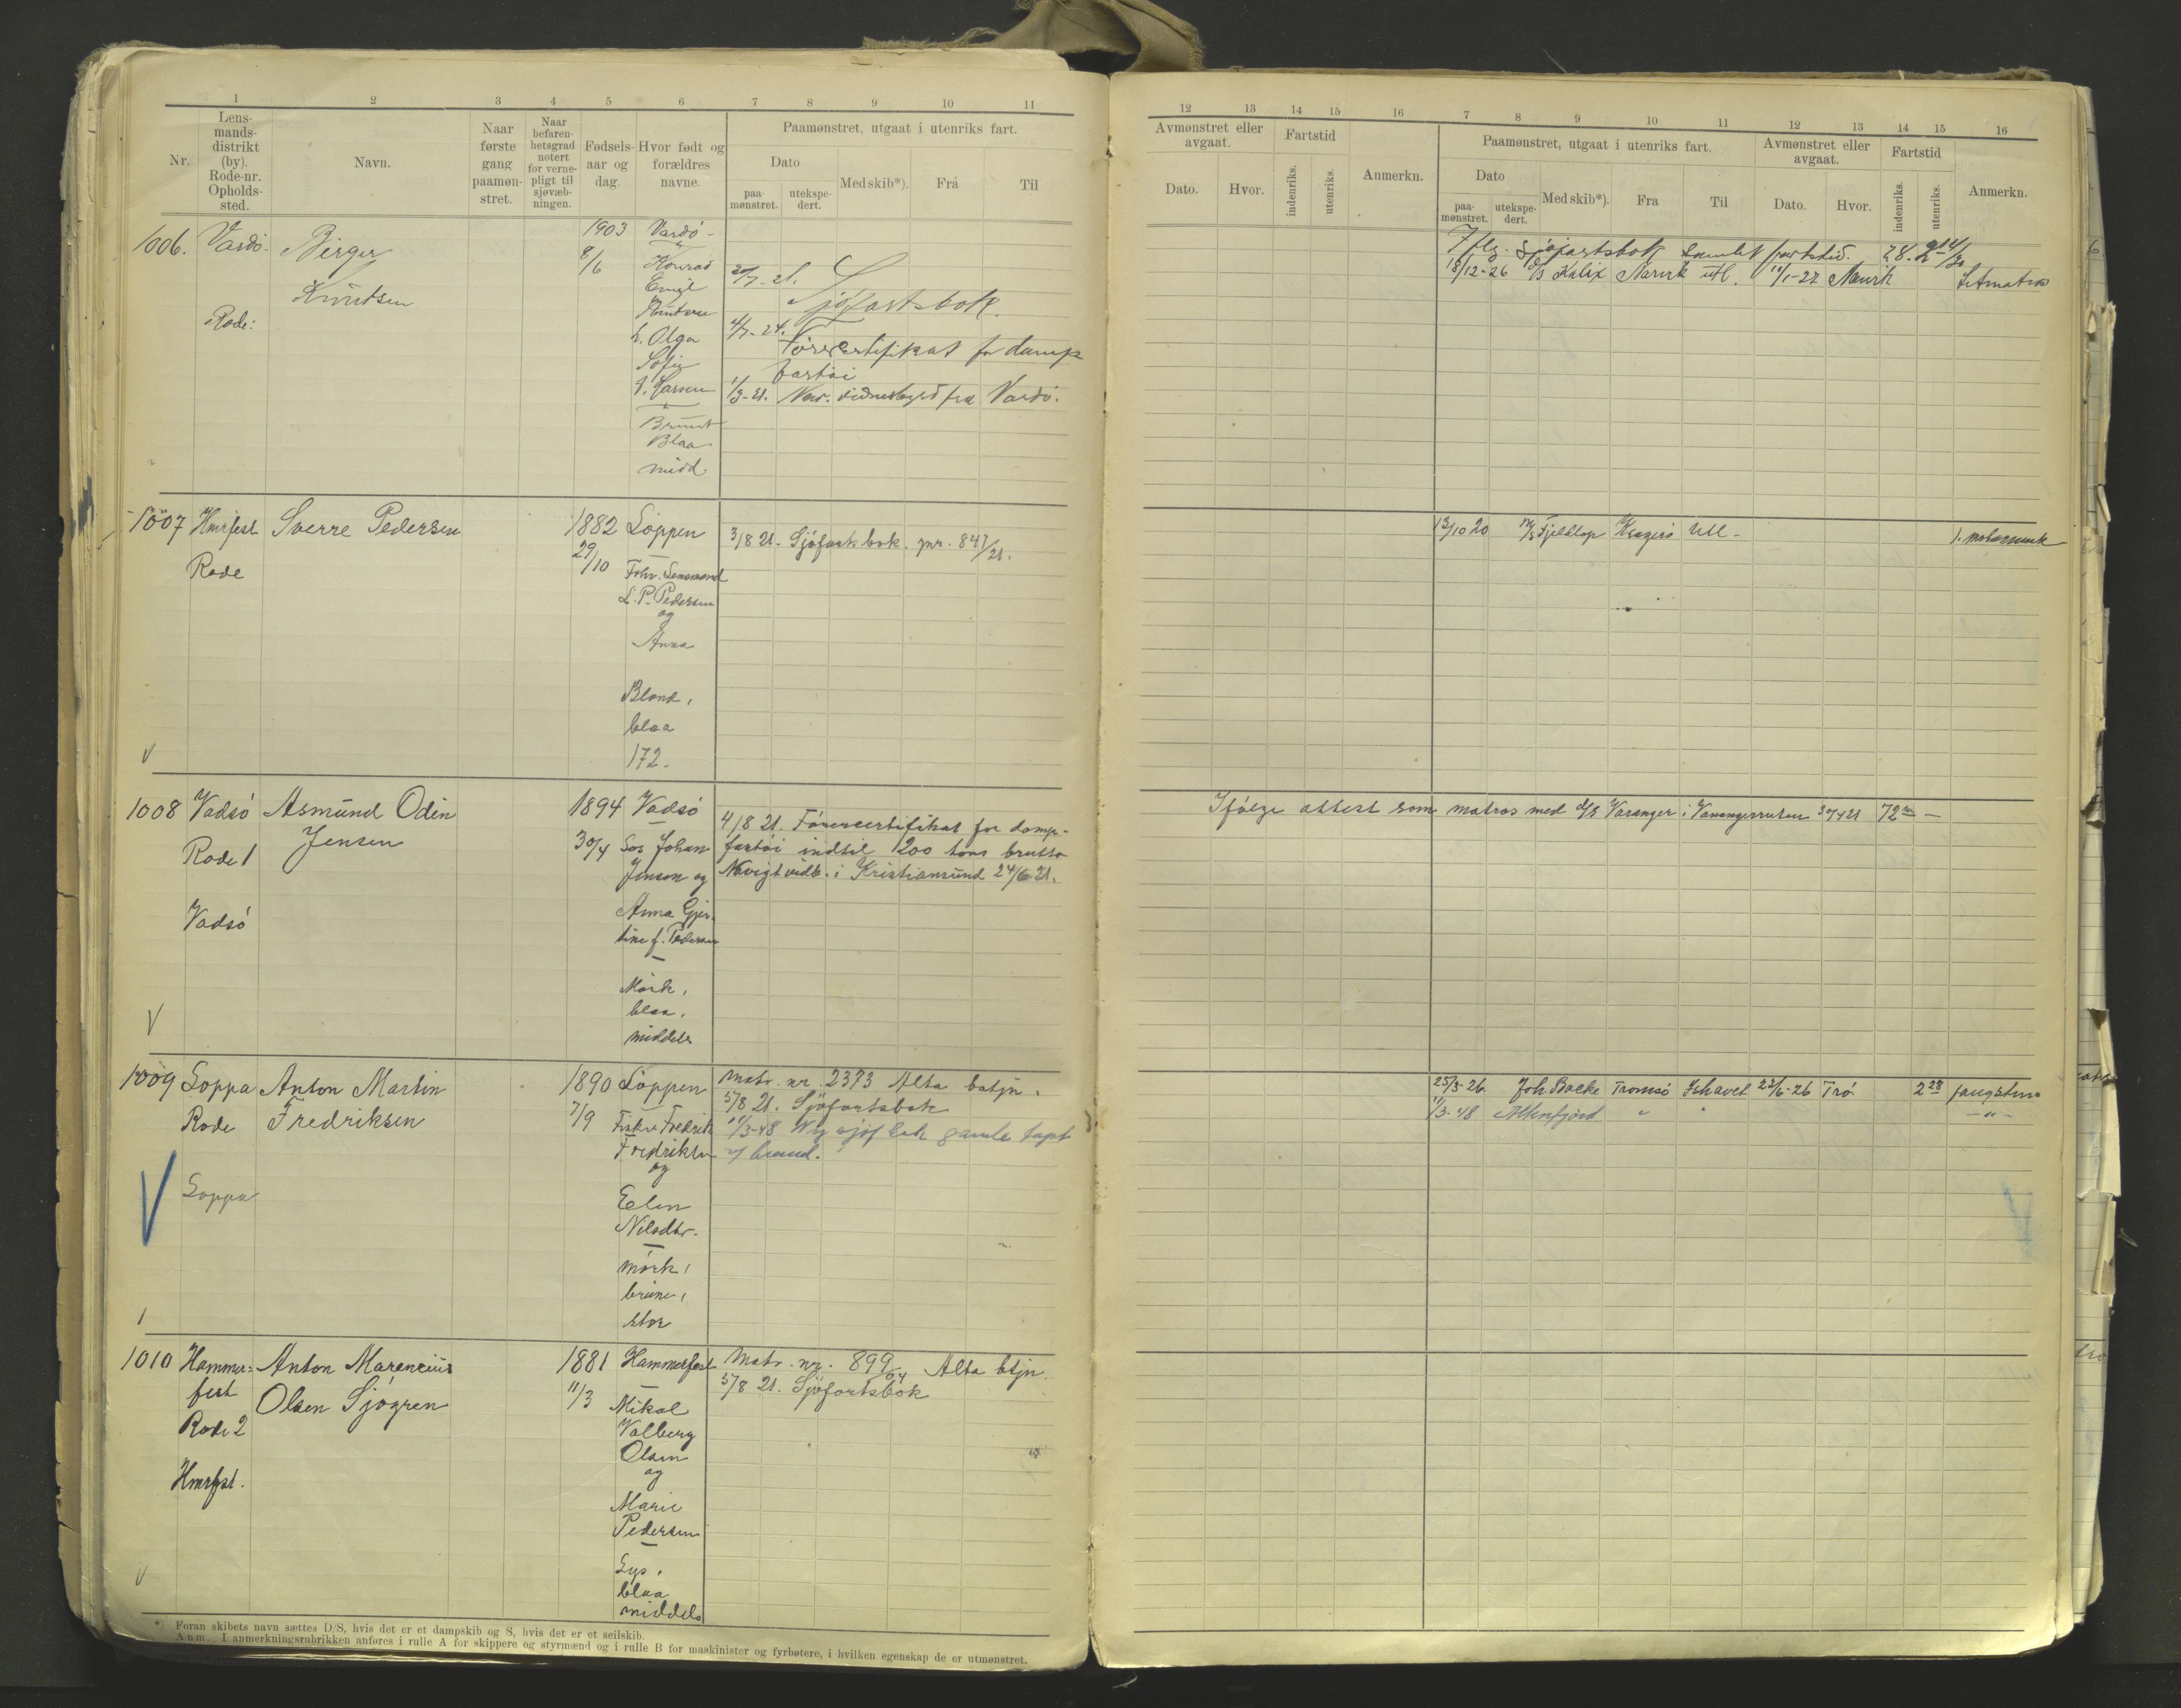 1 2 3 4 5 6 7 8 9 10 11
Nr.
Lens-
mands-
distrikt
(by).
Rode-nr.
Opholds-
sted.
Navn.
Naar
første
gang
paamøn-
stret.
Naar
befaren-
hetsgrad
notert
for verne-
pligt til
sjøvæb-
ningen.
Fødsels-
aar og
dag.
Hvor født og
forældres
navne.
Paamønstret, utgaat i utenriks fart.
Dato
paa-
mønstret.
utekspe-
dert.
Med skib*).
Fra
Til
1006. Vardö Birger
Knutsen
Rode:
1903
8/6
Vardö
Konrad
Emil
Knutsen
h. Olga
Sofie
f. Larsen
Brunt
Blaa
midd
20/7-21. Sjöfartsbok.
4/7-24. Förercertifikat for damp
fartöi
1/3-21. Nav. vidnesbyrd fra Vardö.
1007 Hmrfest Sverre Pedersen
Rode
1882
29/10
Loppen
Fhv. Lensmand
L. P. Pedersen
og
Anna
Blond,
blaa
172.
3/8 21. Sjöfartsbok. jnr. 847/21.
1008 Vadsö Asmund Odin
Jensen
Rode 1
Vadsö
1894
30/4
Vadsö
Sos Johan
Jenson og
Anna Gjer-
tine f. Pedersen
Mörk,
blaa,
middels
4/8 21. Förercertifikat for damp-
fartöi indtil 200 tons brutto
Navigt vidb. i Kristiansund 24/6 21.
1009 Loppa Anton Martin
Fredriksen
Rode
Loppa
1890
7/9
Loppen
Fisker Fredrik
Fredriksen
og
Elen
Nilsdtr.
mörk,
brune,
stor
Matr. nr. 2373 Alta batjn.
5/8 21. Sjöfartsbok
11/3-48 Ny sjöf bok gamle tapt
v/ brand.
1010 Hammer-
fest
Anton Marencius
Olsen Sjögren
Rode 2
Hmrfst.
1881
11/3
Hammerfest
Mikal
Valberg
Olsen
og
Marie
Pedersen
Lys,
blaa
middels
Matr. nr. 899/04 Alta btjn.
5/8 21. Sjöfartsbok
* Foran skibets navn sættes D/S, hvis det er et dampskib og S, hvis det er et seilskib.
Anm. I anmerkningsrubrikken anføres i rulle A for skippere og styrmænd og i rulle B for maskinister og fyrbøtere, i hvilken egenskap de er utmønstret.
12 13 14 15 16 7 8 9 10 11 12 13 14 15 16
Avmønstret eller
avgaat.
Dato. Hvor.
Fartstid
indenriks.
utenriks.
Anmerkn.
Paamønstret, utgaat i utenriks fart.
Dato
paa-
mønstret.
utekspe-
dert.
Med skib*).
Fra
Til
Avmønstret eller
avgaat.
Dato. Hvor.
Fartstid
indenriks.
utenriks.
Anmerkn.
Iflg. sjöfartsbok samlet fartstid.
18/12-26 Kalix Narvik utl. 11/1-27 Narvik Letmatros
13/10 20 M/S Fjeldtop Kragerö Utl - 1. motormask
Ifölge attest som matros med d/s Varanger i Varangerruten 3/7 4 21 72
25/3-26 Joh Bakke Tromsö Ishavet 23/6-26 Trö. 2 28 fangstm
11/3-48 Altenfjord " " - " -